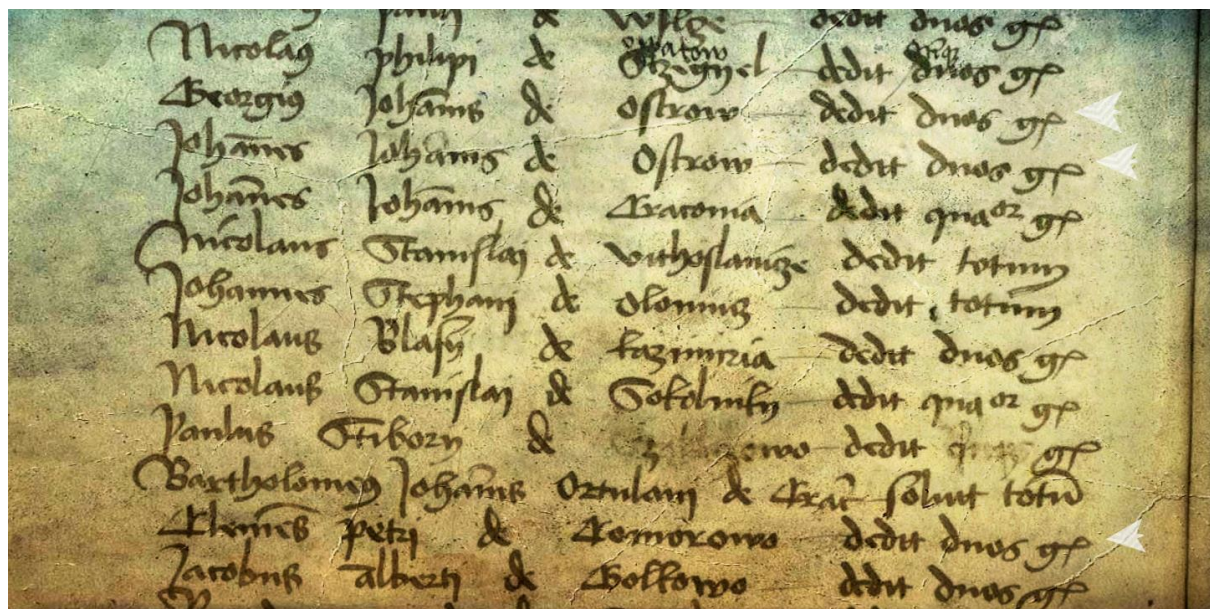 de dedit duos gr
Nicolaus philipi de opatow dedit duos gr
Georgius Johānis de Ostrow dedit duos gr
Johānes Johānis de Ostrow dedit duos gr
Johānes Johānis de Cracouia dedit quaor gr
Nicolaus Stanislai de vithoslauicze dedit totum
Johannes Stephani de Olomuis dedit totum
Nicolaus Blasij de kazimiria dedit duos gr
Nicolaus Stanislai de Sokolniky dedit quaor gr
Paulus Stibory de dedit gr
Bartholomeus Johānis Ortulani de Crac̄ soluit totū
Clemēs petri de Comorowo dedit duos gr
Jacobus alberti de Golkowo dedit duos gr